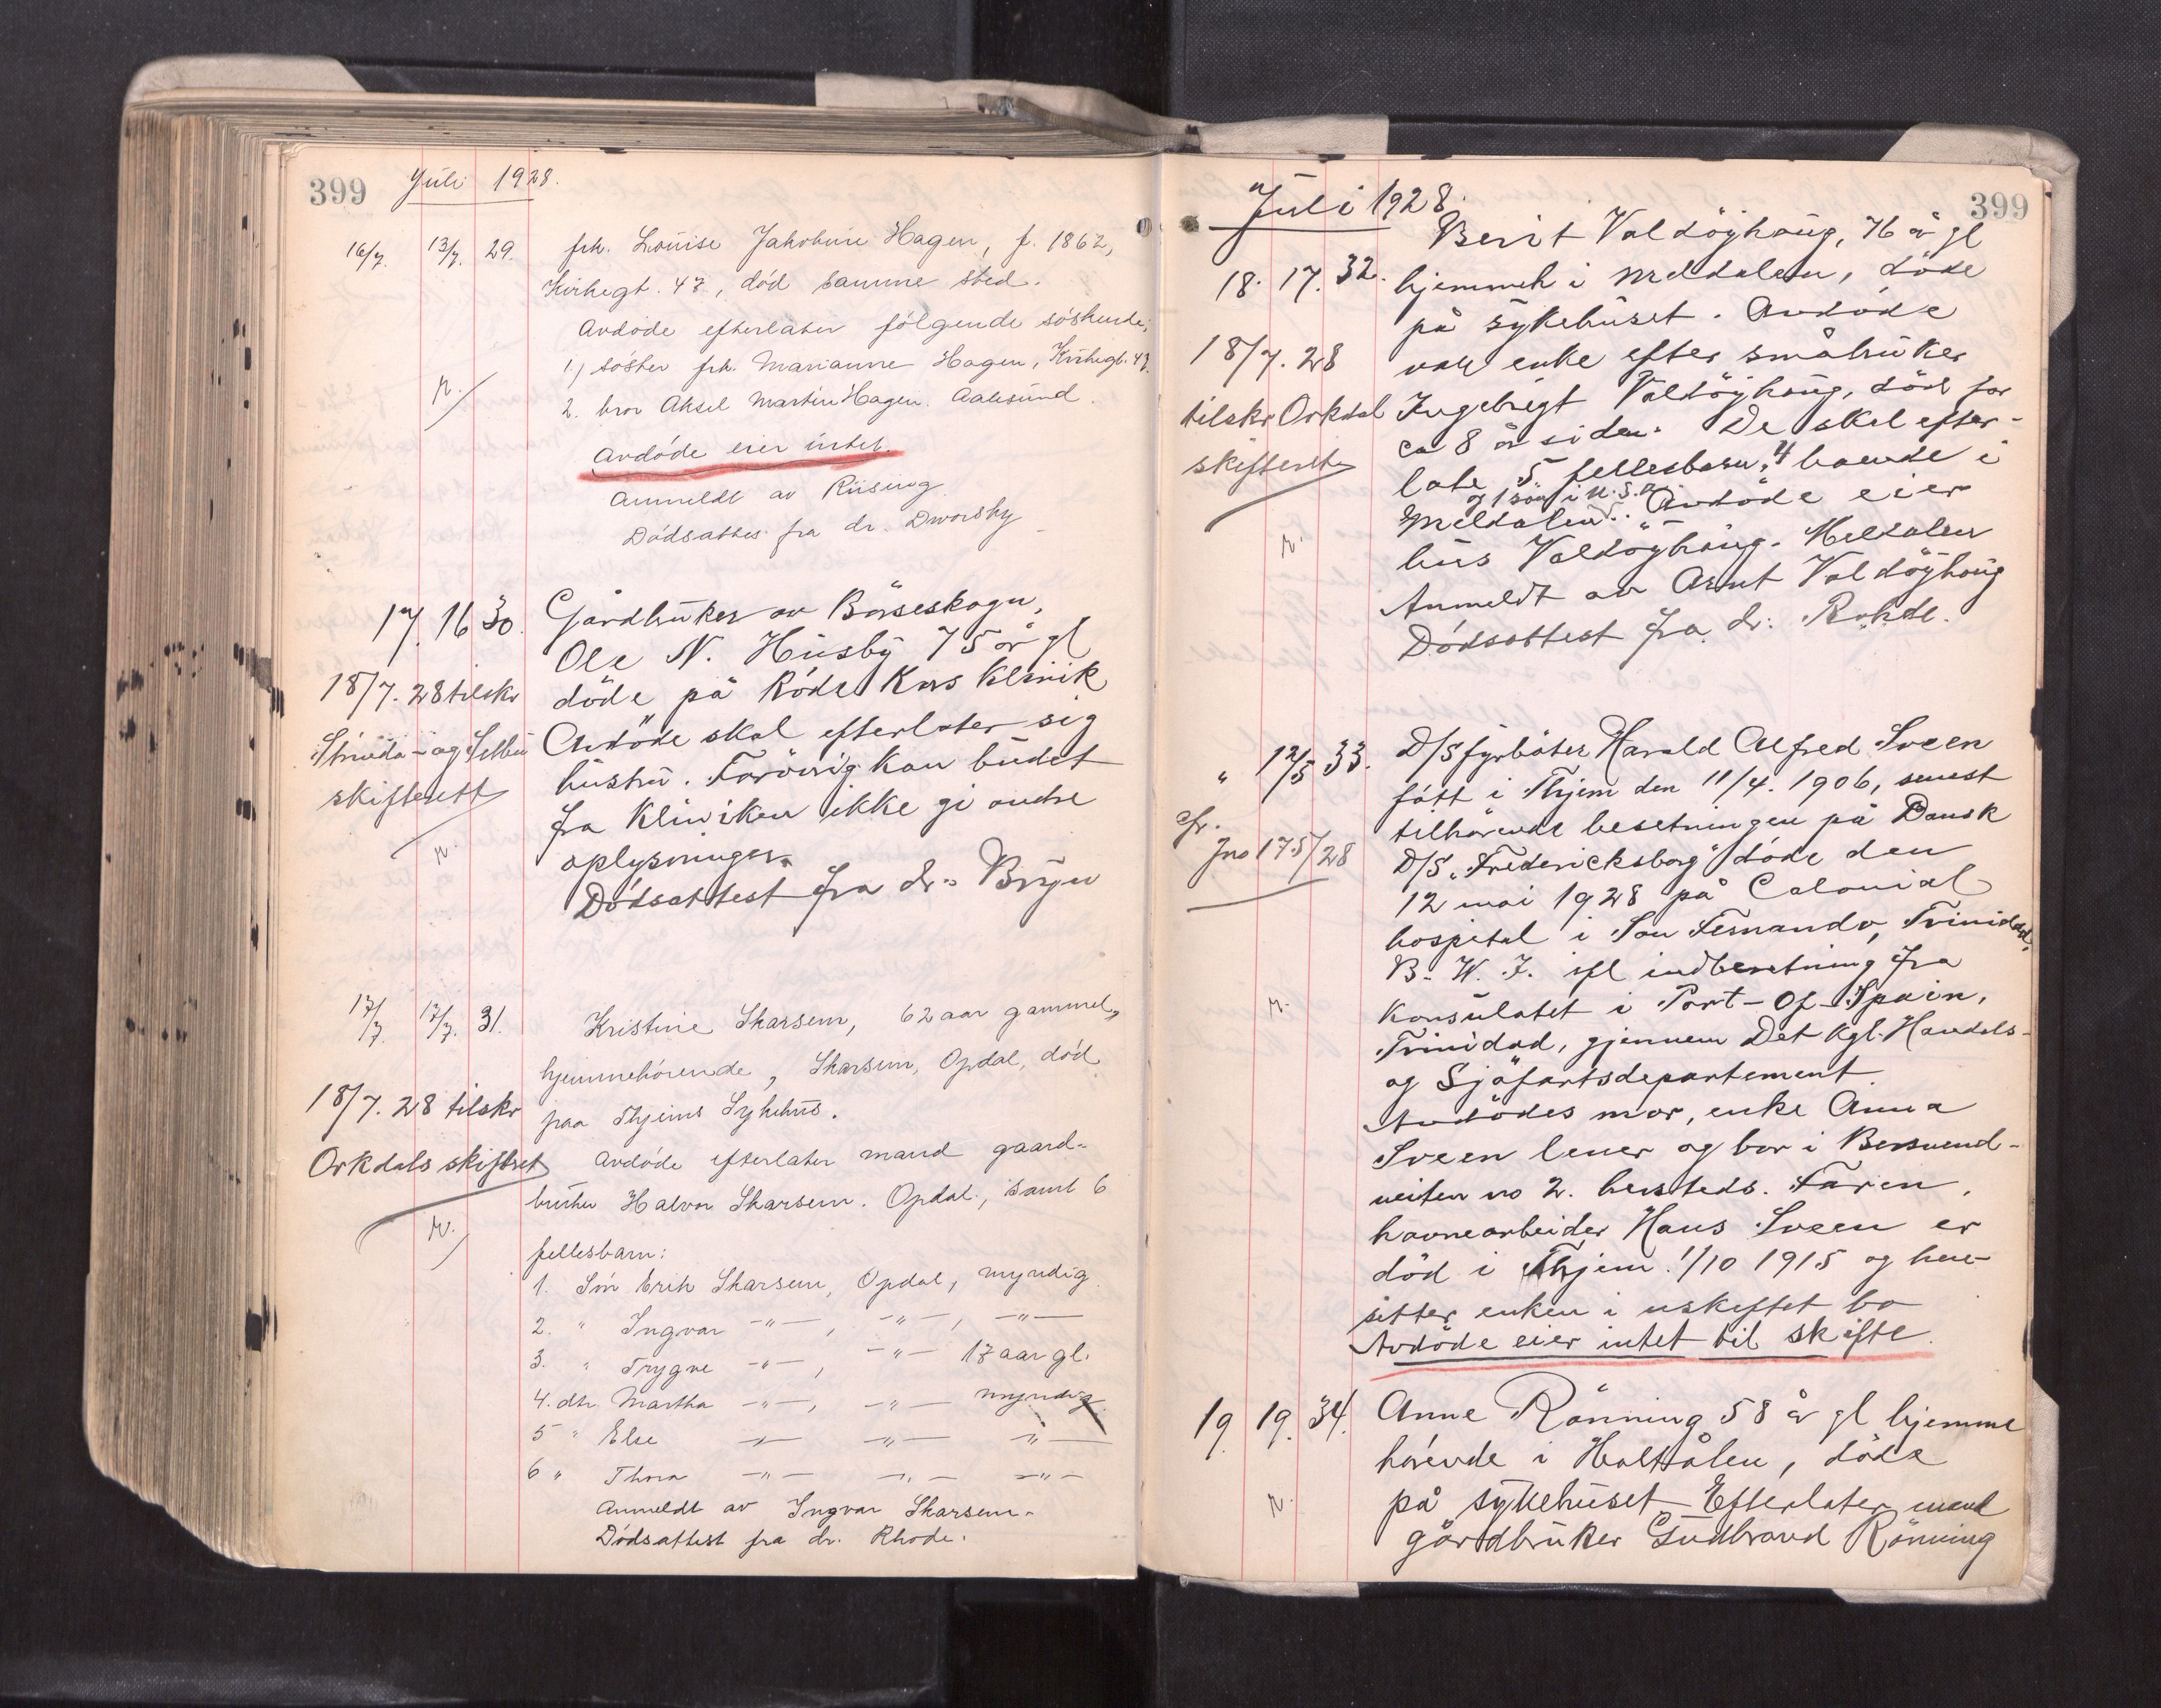 399 Juli 1928.
16/7. 13/7. 29. frk. Louise Jakobine Hagen, f. 1862,
Kirkegt. 47, död samme sted.
Avdöde efterlater fölgende söskende;
1.) söster frk. Marianne Hagen, Kirkegt. 47.
2. bror Aksel Martin Hagen. Aalesund.
Avdöde eier intet.
Anmeldt av Riising
Dödsattes fra dr. Dworsky
17. 16 30. Gårdbruker av Börseskogn,
Ole N. Husby 75 år gl
döde på Röde Kors Klinik
Avdöde skal efterlater sig
hustru. Forövrig kan budet
fra Kliniken ikke gi andre
oplysninger.
Dödsattest fra dr. Bryn
18/7. 28 tilskr
Strinda- og Selbu
skifterett
17/7. 17/7. 31. Kristine Skarsem, 62 aar gammel,
hjemmehörende, Skarsem, Opdal, död
paa Thjems Sykehus.
Avdöde efterlater mand gaard-
bruker Halvor Skarsem. Opdal, samt 6
fellesbarn:
1. Sön Erik Skarsem, Opdal, myndig
2. " Ingvar -"-, -"-, -"-
3. " Trygve -"-, -"- 17 aar gl.
4. dtr. Martha -"-, -"- myndig
5 " Else -"- -"- -"-
6 " Thora -"- -"- -"-
Anmeldt av Ingvar Skarsem.
Dödsattest fra dr. Rhode.
18/7. 28 tilskr
Orkdals skifteret
Juli 1928. 399
18. 17. 32. Berit Valdöyhaug, 76 år gl
hjemmeh i Meldalen, döde
på sykehuset. Avdöde
var enke efter småbruker
Ingebrigt Valdöyhaug, död for
ca 8 år siden. De skal efter-
late 5 fellesbarn, 4 boende i
og 1 sön i U.S.A.
Meldalen. Avdöde eier
hus Valdöyhaug. Meldalen
Anmeldt av Arnt Valdöyhaug
Dödsattest fra dr. Rohde.
18/7. 28
tilskr Orkdal
skifterett
" 12/5 33. D/S fyrböter Harald Alfred Sveen
fött i Thjem den 11/4. 1906, senest
tilhörende besetningen på Dansk
D/S. "Fredericksborg" döde den
12 mai 1928 på Colonial
hospital i San Fernando, Trinidad,
B. W. I. ifl indberetning fra
Konsulatet i Port-of-Spain,
Trinidad, gjennem Det Kgl. Handels-
og Sjöfartsdepartement.
Avdödes mor, enke Anna
Sveen lever og bor i Bersvend-
veiten no 2. hersteds. Faren,
havnearbeider Hans Sveen er
död i Thjem 1/10 1915 og hen-
sitter enken i uskiftet bo
Avdöde eier intet til skifte.
cfr.
Jno 175/28
19. 19. 34. Anne Rönning 58 år gl hjemme
hörende i Holtålen, döde
på sykehuset Efterlater mand
gårdbruker Gudbrand Rönning